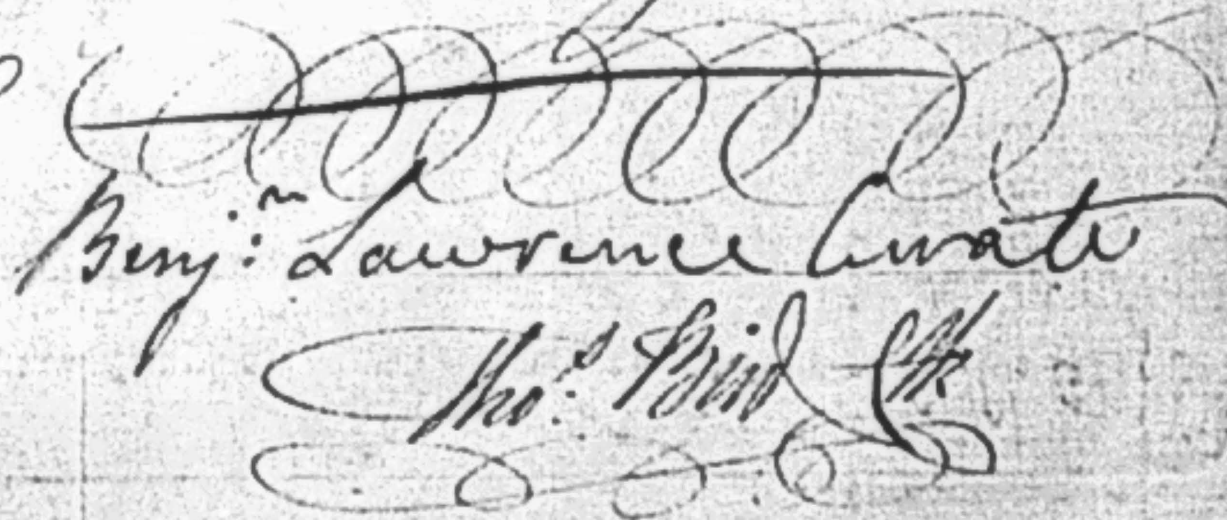 Benj:ⁿ Lawrence Curate
Tho:ˢ Bird Clk